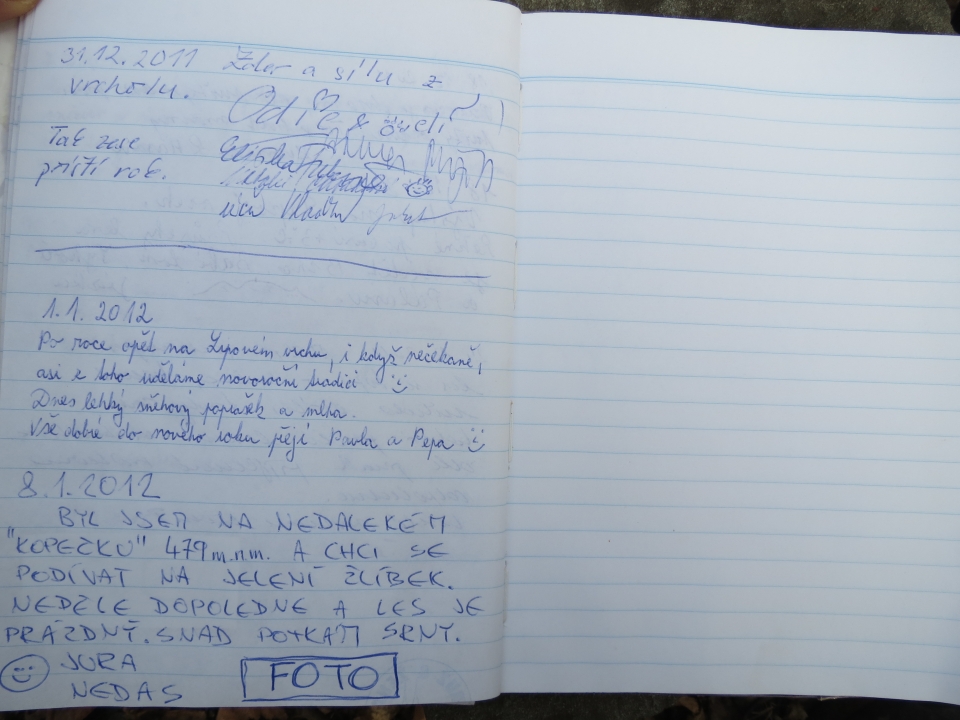 31.12.2011 Zdar a sílu z
vrcholu.
Tak zase
příští rok.
1.1. 2012
Po roce opět na Lipovém vrchu, i když nečekaně,
asi z toho uděláme novoroční tradici
Dnes lehký sněhový poprašek a mlha.
Vše dobré do nového roku přejí Pavla a Pepa
8.1.2012
BYL JSEM NA NEDALEKÉM
"KOPEČKU" 479 m.n.m. A CHCI SE
PODÍVAT NA JELENÍ ŽLÍBEK.
NEDĚLE DOPOLEDNE A LES JE
PRÁZDNÝ. SNAD POTKÁM SRNY.
JURA
NEDAS
FOTO